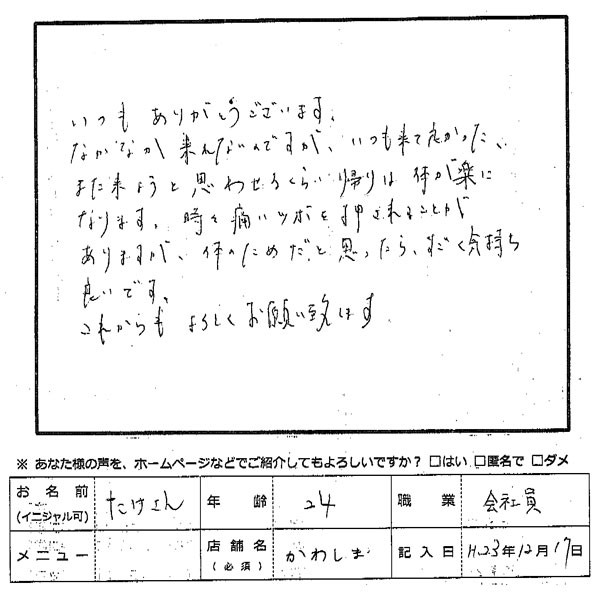 いつも ありがとうございます。
なかなか 来れないんですが、いつも来て良かった、
また来ようと思わせるくらい帰りは体が楽に
なります。時々痛いツボを押されることが
ありますが、体のためだと思ったら、すごく気持ち
良いです。
これからも よろしくお願い致します
※ あなた様の声を、ホームページなどでご紹介してもよろしいですか？ □はい □匿名で □ダメ
お名前 (イニシャル可) たけさん 年齢 24 職業 会社員
メニュー 店舗名 (必須) かわしま 記入日 H.23年12月17日